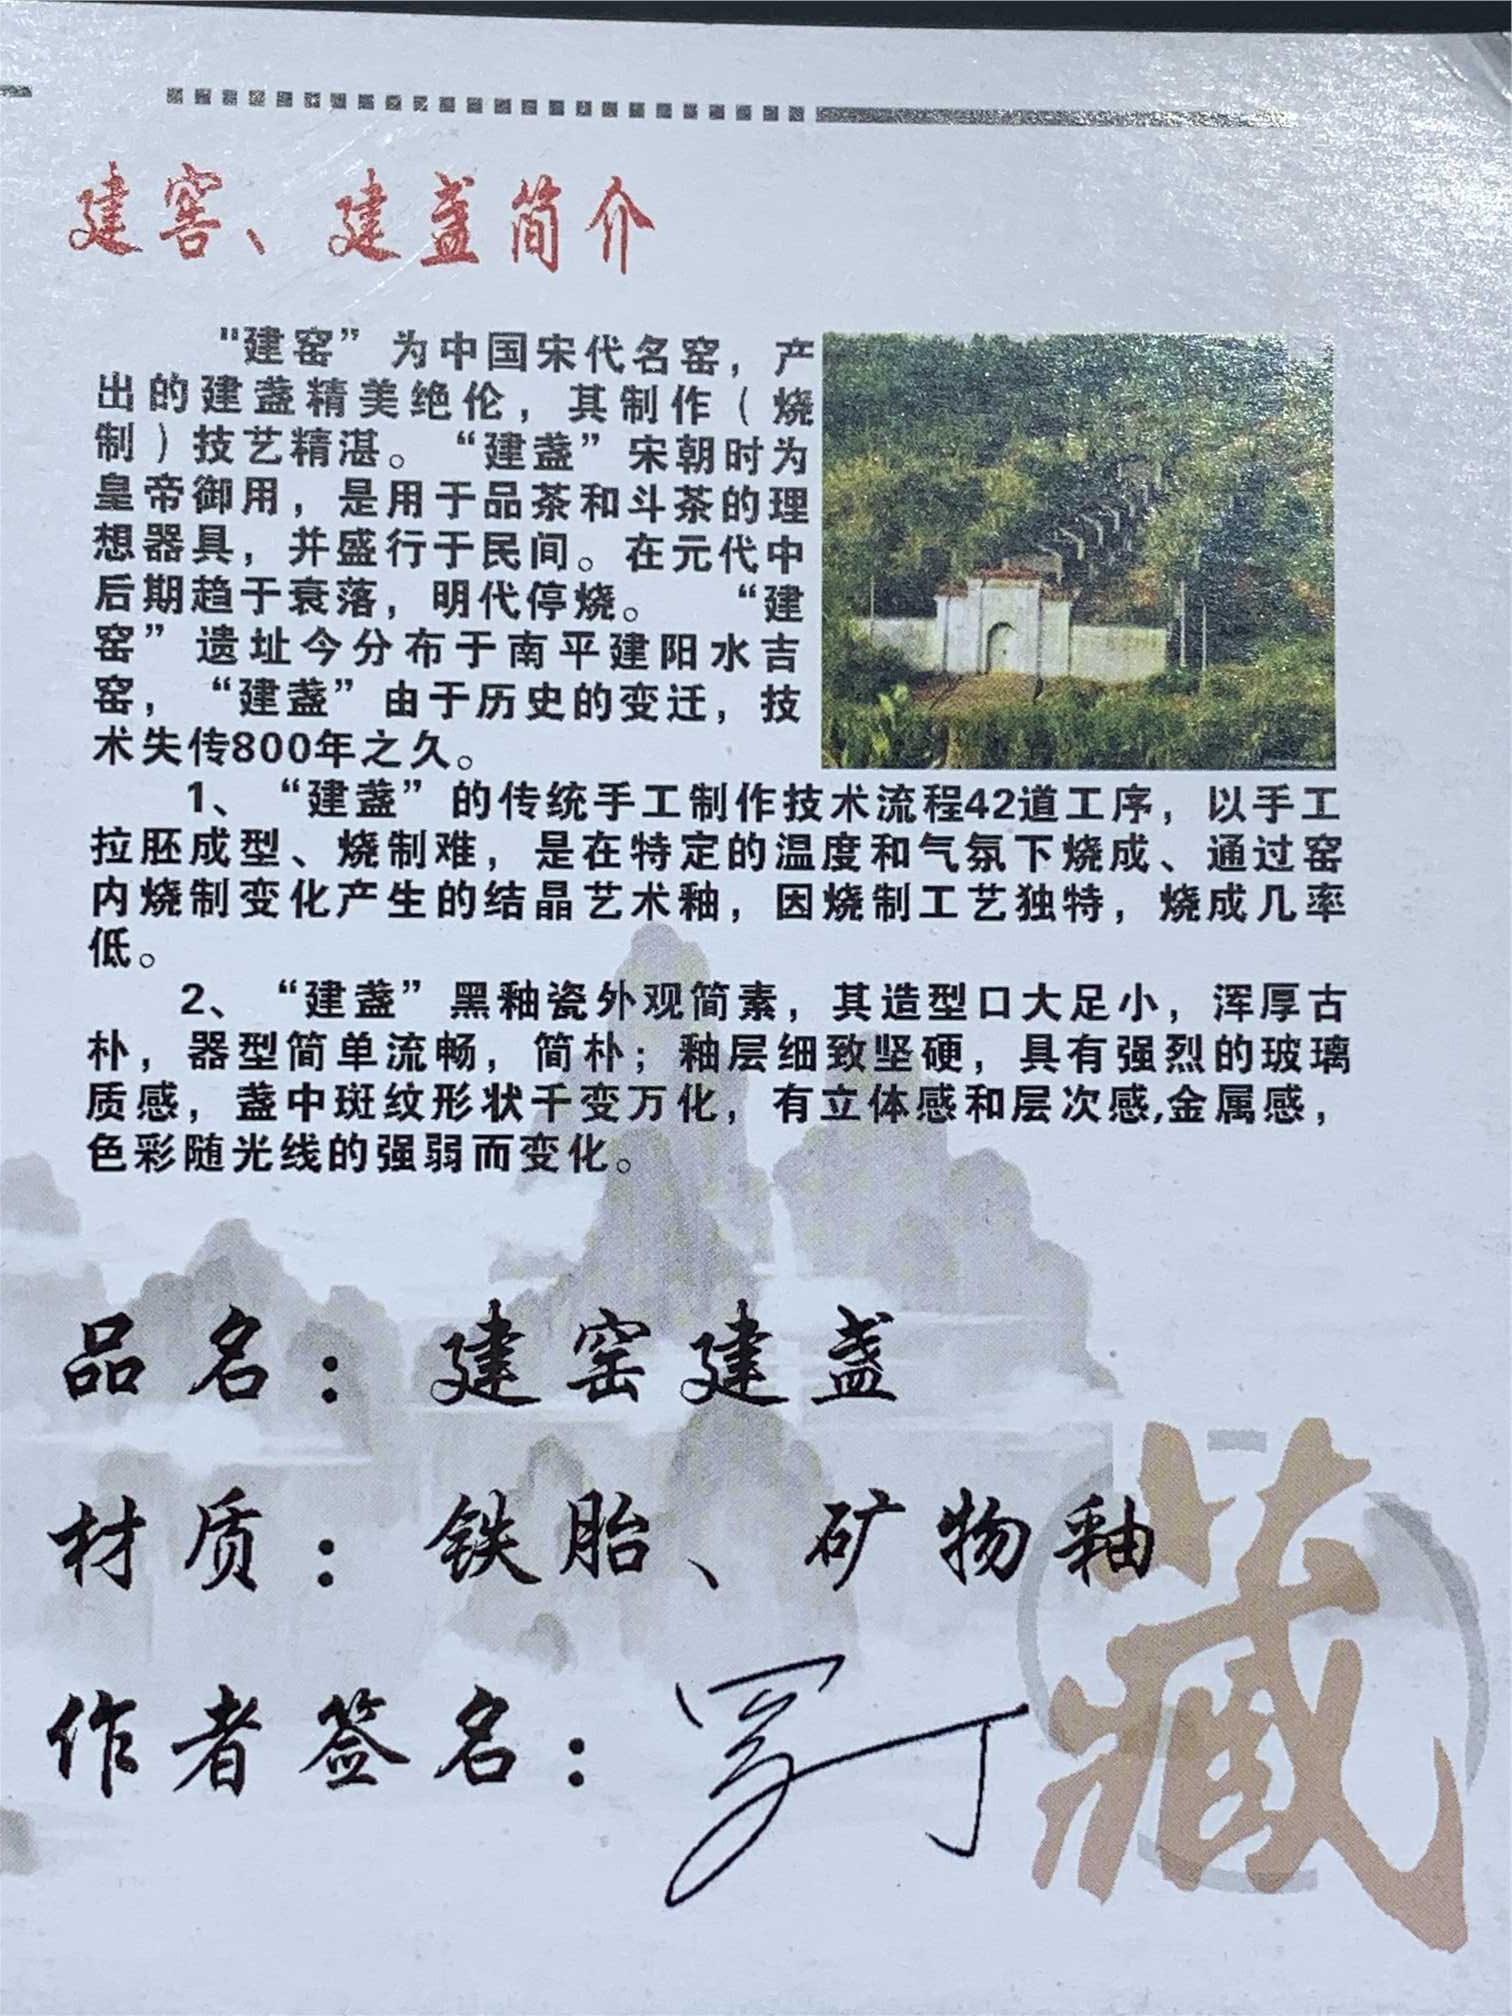 建窑、建盏简介
"建窑”为中国宋代名窑，产
出的建盏精美绝伦，其制作（烧
制）技艺精湛。“建盏”宋朝时为
皇帝御用，是用于品茶和斗茶的理
想器具，并盛行于民间。在元代中
后期趋于衰落，明代停烧。 “建
窑”遗址今分布于南平建阳水吉
窑，“建盏”由于历史的变迁，技
术失传800年之久。
1、“建盏”的传统手工制作技术流程42道工序，以手工
拉胚成型、烧制难，是在特定的温度和气氛下烧成、通过窑
内烧制变化产生的结晶艺术釉，因烧制工艺独特，烧成几率
低。
2、“建盏”黑釉瓷外观简素，其造型口大足小，浑厚古
朴，器型简单流畅，简朴；釉层细致坚硬，具有强烈的玻璃
质感，盏中斑纹形状千变万化，有立体感和层次感,金属感，
色彩随光线的强弱而变化。
品名：建窑建盏
材质：铁胎、矿物釉
作者签名：
藏